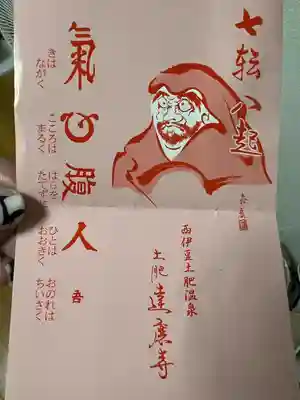 七転八起
西伊豆土肥温泉
土肥 達磨寺
氣心腹人吾
きは ながく
こころは まるく
はらを たてずに
ひとは おおきく
おのれは ちいさく